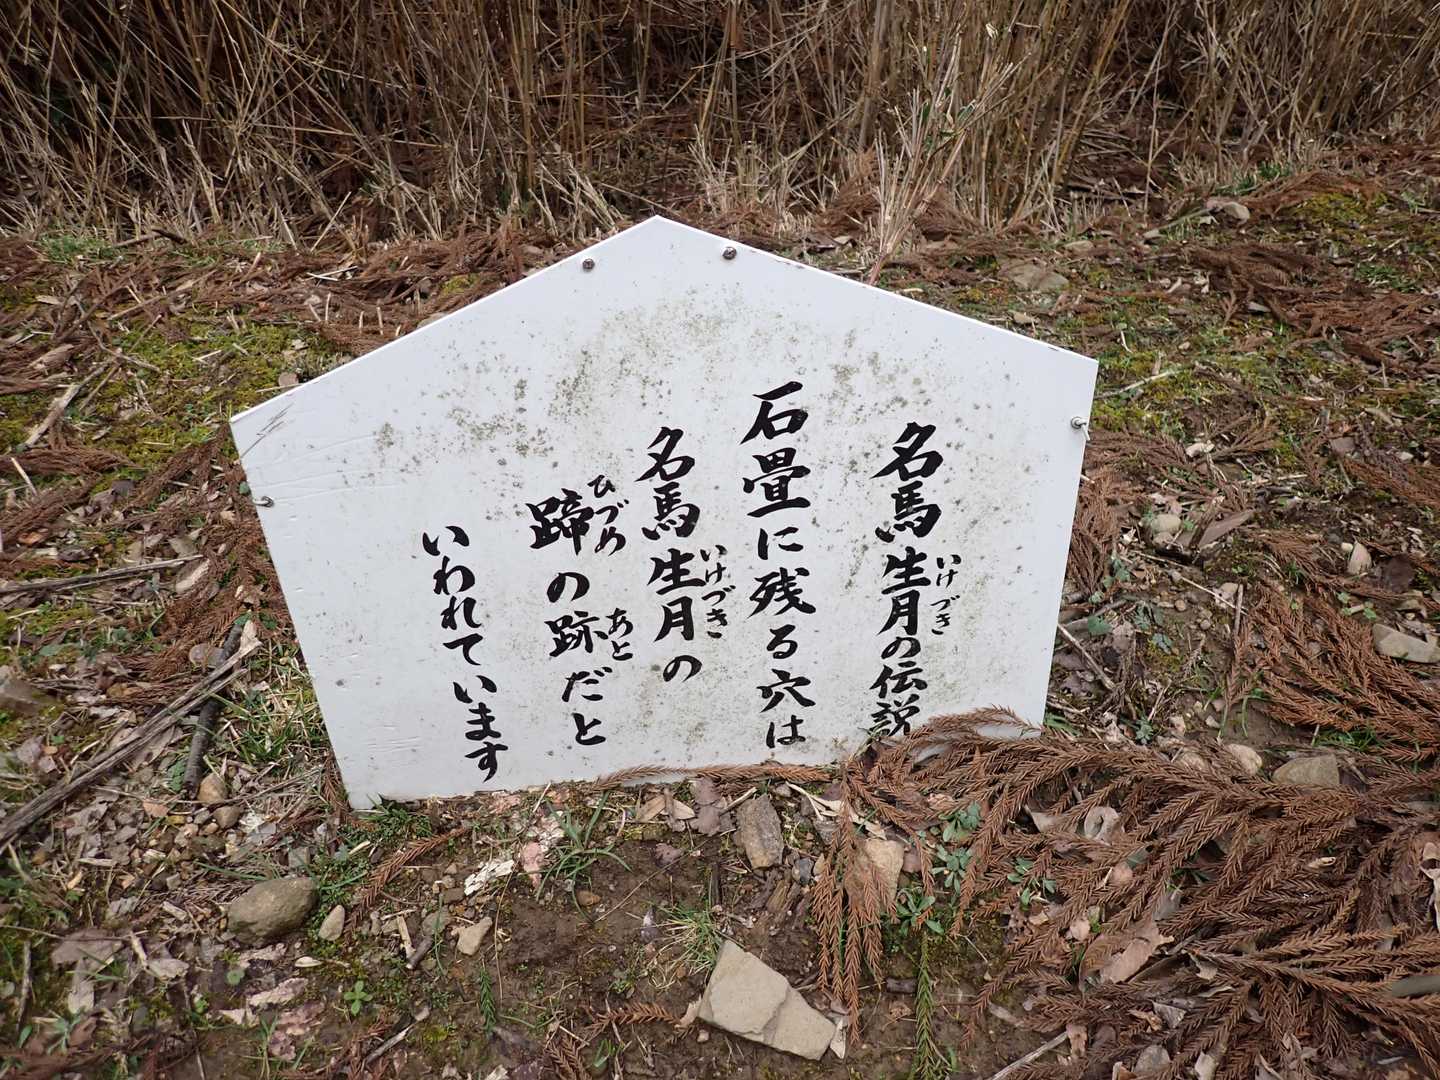 名馬生月の伝説
いけづき
石畳に残る穴は
名馬生月の
いけづき
蹄の跡だと
ひづめ
あと
いわれています